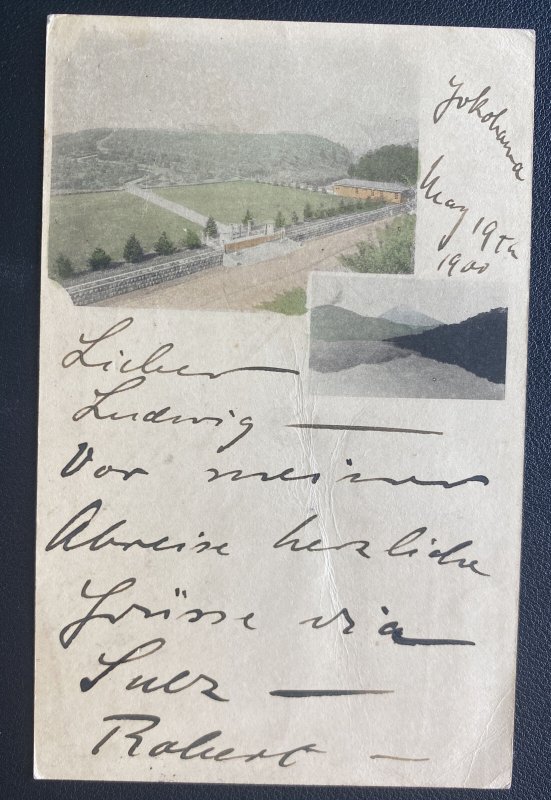 Yokohama
May 19th
1900
Lieber
Ludwig —
Vor meiner
Abreise herzliche
Grüsse via
Suez —
Robert —